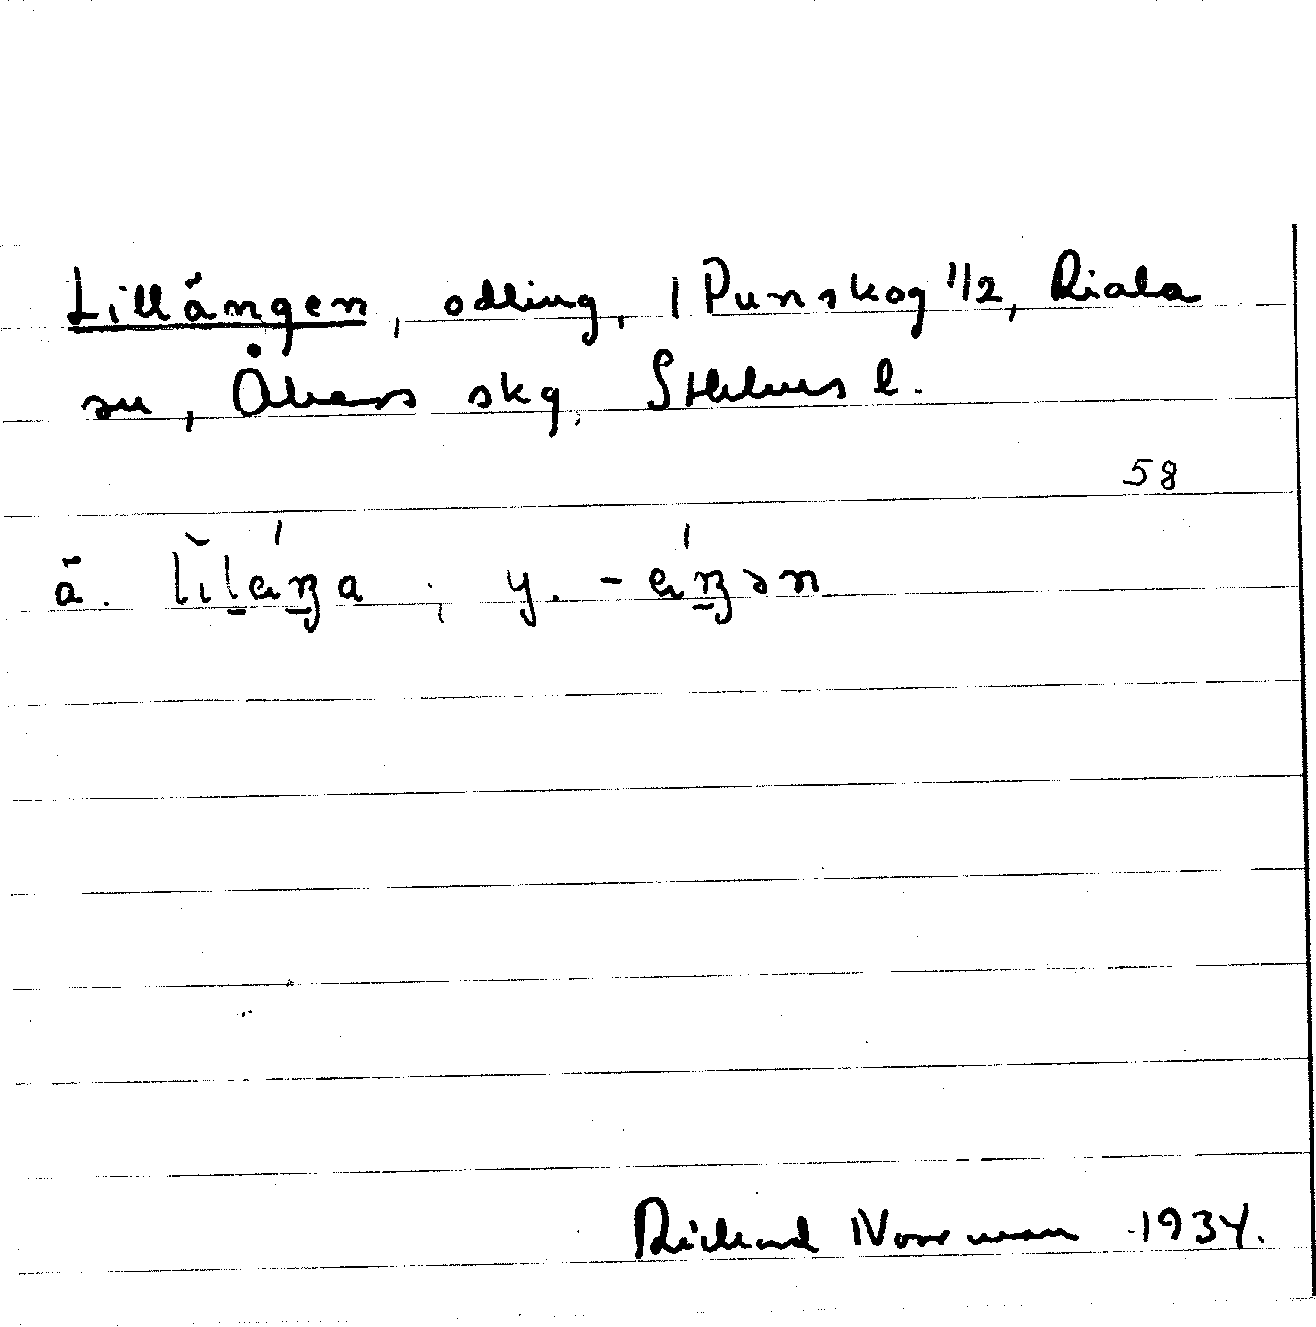 Lillängen, odling, 1 Punskog 1/2, Riala
sn, Åkers skg, Sthlms l.
58
ä. lilä́ŋa ; y. -ä́ŋən
Richard Noreman 1934.